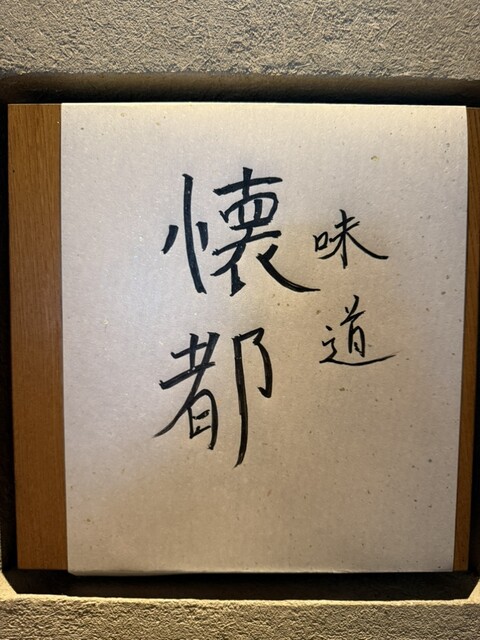 味道
懐都